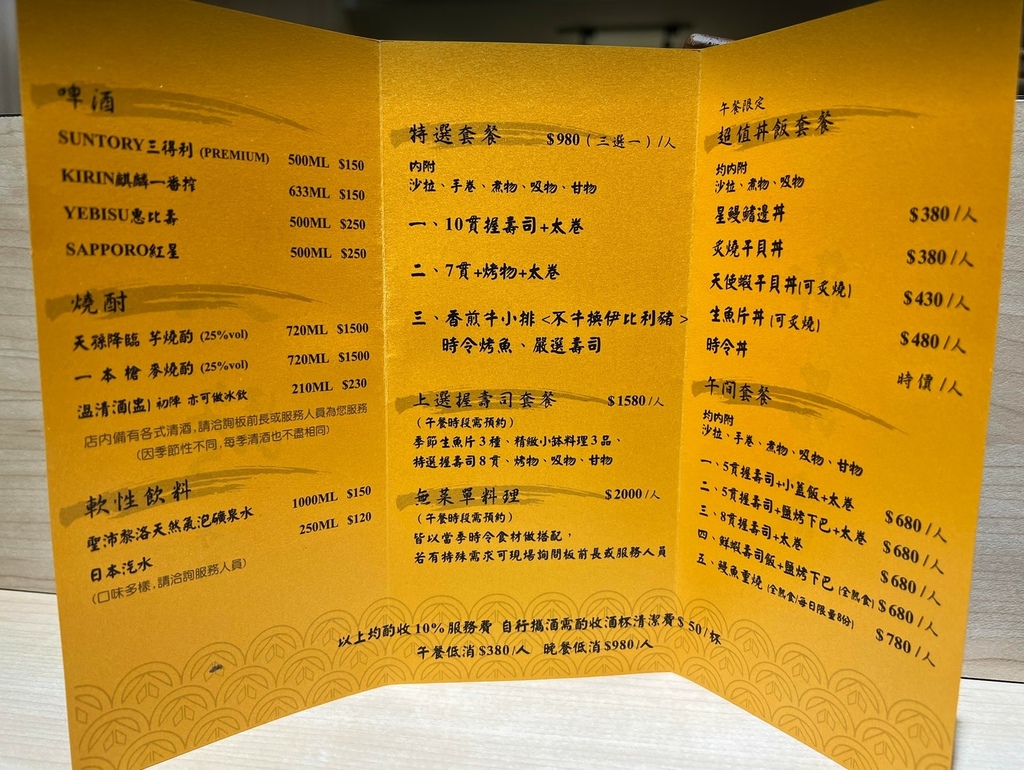 啤酒
SUNTORY三得利 (PREMIUM) 500ML $150
KIRIN麒麟一番搾 633ML $150
YEBISU惠比壽 500ML $250
SAPPORO紅星 500ML $250
燒酎
天孫降臨 芋燒酌 (25%vol) 720ML $1500
一本槍 麥燒酌 (25%vol) 720ML $1500
溫清酒(盅) 初陣 亦可做冰飲 210ML $230
店內備有各式清酒,請洽詢板前長或服務人員為您服務
(因季節性不同,每季清酒也不盡相同)
軟性飲料
聖沛黎洛天然氣泡礦泉水 1000ML $150
日本汽水 250ML $120
(口味多樣,請洽詢服務人員)
特選套餐 $980(三選一)/人
內附
沙拉、手卷、煮物、吸物、甘物
一、10貫握壽司+太卷
二、7貫+烤物+太卷
三、香煎牛小排 <不牛換伊比利豬>
時令烤魚、嚴選壽司
上選握壽司套餐 $1580/人
(午餐時段需預約)
季節生魚片3種、精緻小缽料理3品、
特選握壽司8貫、烤物、吸物、甘物
無菜單料理 $2000/人
(午餐時段需預約)
皆以當季時令食材做搭配,
若有特殊需求可現場詢問板前長或服務人員
午餐限定
超值丼飯套餐
均內附
沙拉、煮物、吸物
星鰻鰭邊丼 $380/人
炙燒干貝丼 $380/人
天使蝦干貝丼(可炙燒) $430/人
生魚片丼(可炙燒) $480/人
時令丼 時價/人
午間套餐
均內附
沙拉、手卷、煮物、吸物、甘物
一、5貫握壽司+小蓋飯+太卷 $680/人
二、5貫握壽司+鹽烤下巴+太卷 $680/人
三、8貫握壽司+太卷 $680/人
四、鮮蝦壽司飯+鹽烤下巴 (全熟食) $680/人
五、鰻魚重燒 (全熟食/每日限量8份) $780/人
以上均酌收10%服務費 自行攜酒需酌收酒杯清潔費$50/杯
午餐低消$380/人 晚餐低消$980/人